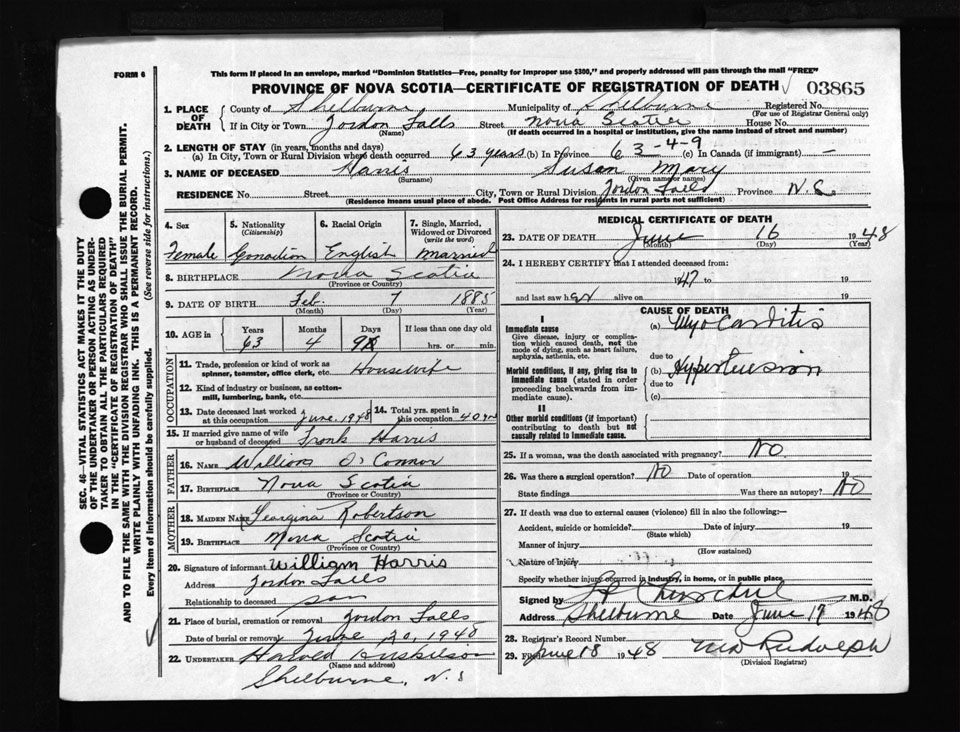 FORM 6
This form if placed in an envelope, marked "Dominion Statistics—Free, penalty for improper use $300," and properly addressed will pass through the mail "FREE"
PROVINCE OF NOVA SCOTIA—CERTIFICATE OF REGISTRATION OF DEATH 03865
1. PLACE OF DEATH
County of Shelburne Municipality of Shelburne Registered No.
(For use of Registrar General only)
If in City or Town Jordon Falls Street Nova Scotia House No.
(Name) (If death occurred in a hospital or institution, give the name instead of street and number)
2. LENGTH OF STAY (in years, months and days)
(a) In City, Town or Rural Division where death occurred 63 years (b) In Province 63-4-9 (c) In Canada (if immigrant) —
3. NAME OF DECEASED Harris Susan Mary
(Surname) (Given name or names)
RESIDENCE No. Street City, Town or Rural Division Jordon Falls Province N.S.
(Residence means usual place of abode. Post Office Address for residents in rural parts not sufficient)
4. Sex
Female
5. Nationality
(Citizenship)
Canadian
6. Racial Origin
English
7. Single, Married, Widowed or Divorced
(write the word)
Married
8. BIRTHPLACE Nova Scotia
(Province or Country)
9. DATE OF BIRTH Feb. 7 1885
(Month) (Day) (Year)
10. AGE in Years Months Days If less than one day old
63 4 9 hrs. or min.
OCCUPATION
11. Trade, profession or kind of work as spinner, teamster, office clerk, etc. Housewife
12. Kind of industry or business, as cotton-mill, lumbering, bank, etc.
13. Date deceased last worked at this occupation June 1948
14. Total yrs. spent in this occupation 40 yrs
15. If married give name of wife or husband of deceased Frank Harris
FATHER
16. NAME William O'Connor
17. BIRTHPLACE Nova Scotia
(Province or Country)
MOTHER
18. MAIDEN NAME Georgina Robertson
19. BIRTHPLACE Nova Scotia
(Province or Country)
20. Signature of informant William Harris
Address Jordon Falls
Relationship to deceased son
21. Place of burial, cremation or removal Jordon Falls
Date of burial or removal June 20, 1948
22. UNDERTAKER Harold Huskilson
(Name and address)
Shelburne, N.S
MEDICAL CERTIFICATE OF DEATH
23. DATE OF DEATH June 16 1948
(Month) (Day) (Year)
24. I HEREBY CERTIFY that I attended deceased from:
1947 to 19
and last saw her alive on 19
CAUSE OF DEATH
I
Immediate cause
Give disease, injury or complication which caused death, not the mode of dying, such as heart failure, asphyxia, asthenia, etc.
(a) Myocarditis
due to
Morbid conditions, if any, giving rise to immediate cause (stated in order proceeding backwards from immediate cause).
(b) Hypertension
due to
(c)
II
Other morbid conditions (if important) contributing to death but not causally related to immediate cause.
25. If a woman, was the death associated with pregnancy? NO
26. Was there a surgical operation? NO Date of operation 19
State findings Was there an autopsy? NO
27. If death was due to external causes (violence) fill in also the following:—
Accident, suicide or homicide? Date of injury 19
(State which)
Manner of injury
(How sustained)
Nature of injury
Specify whether injury occurred in industry, in home, or in public place.
Signed by M.D.
Address Shelburne Date June 17 1948
28. Registrar's Record Number
29. Filed June 18 1948 Rudolph
(Division Registrar)
SEC. 46—VITAL STATISTICS ACT MAKES IT THE DUTY
OF THE UNDERTAKER OR PERSON ACTING AS UNDER-
TAKER TO OBTAIN ALL THE PARTICULARS REQUIRED
IN THE "CERTIFICATE OF REGISTRATION OF DEATH"
AND TO FILE THE SAME WITH THE DIVISION REGISTRAR WHO SHALL ISSUE THE BURIAL PERMIT.
WRITE PLAINLY WITH UNFADING INK. THIS IS A PERMANENT RECORD.
Every item of information should be carefully supplied. (See reverse side for instructions.)